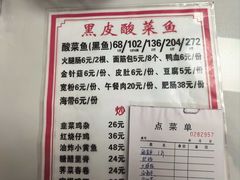 黑皮酸菜鱼
酸菜鱼(黑鱼)68/102/136/204/272
火腿肠6元/2根、面筋包5元/8个、鸭血6元/
金针菇6元/份、皮肚6元/份、豆腐5元/
宽粉6元/份、午餐肉20元/份、肥肠38元/
海带6元/份
炒
韭菜鸡杂 26元
红烧仔鸡 36元
油炸小黄鱼 48元
糖醋里脊 24元
荠菜春卷 24元
点菜单
0282957